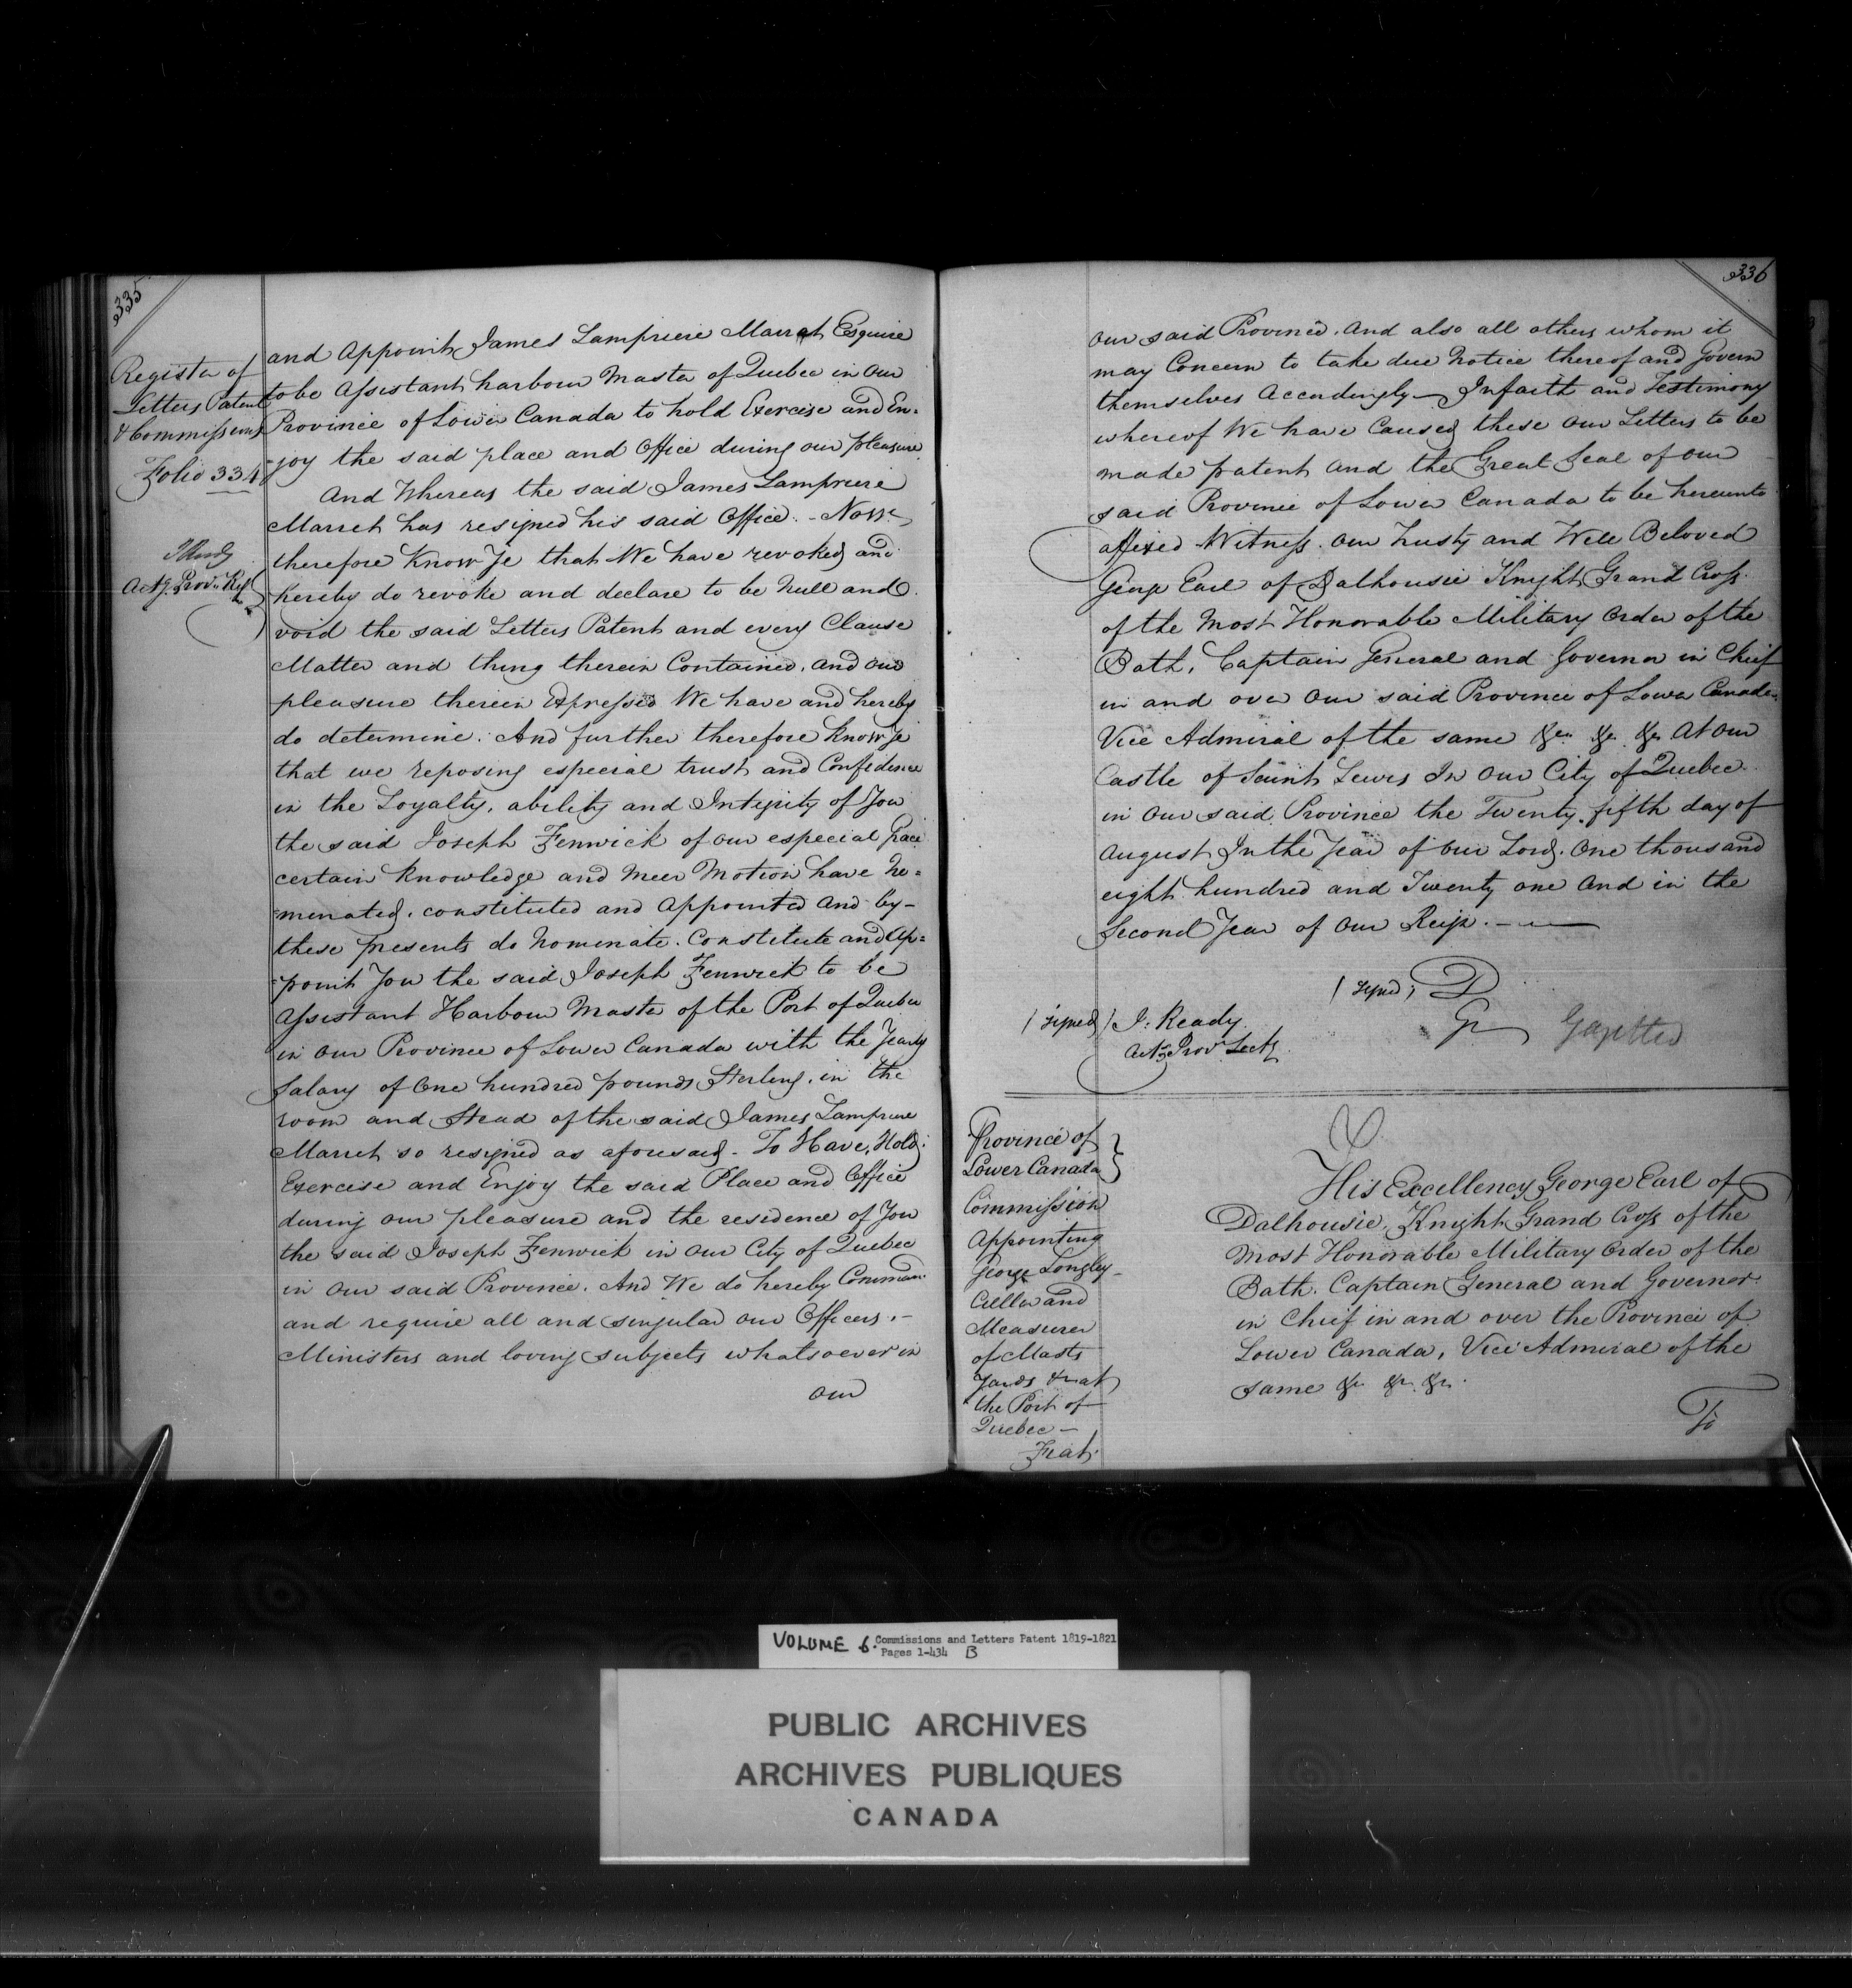 335
Register of
Letters Patent
& Commissions
Folio 334
J Ready
Actg. Prov. Reg
and Appoint James Lampriere Marret Esquire
to be Assistant harbour Master of Quebec in our
Province of Lower Canada to hold Exercise and En-
joy the said place and Office during our pleasure
And Whereas the said James Lampriere
Marret has resigned his said Office. - Now
therefore Know Ye that We have revoked and
hereby do revoke and declare to be Null and
void the said Letters Patent and every Clause
Matter and thing therein Contained. and our
pleasure therein Expressed We have and hereby
do determine. And further therefore Know Ye
that we reposing especial trust and Confidence
in the Loyalty, ability and Integrity of You
the said Joseph Fenwick of our especial Grace
certain Knowledge and meer Motion have No=
=minated, constituted and Appointed and by-
these presents do Nominate. Constitute and Ap=
=point You the said Joseph Fenwick to be
Assistant Harbour Master of the Port of Quebec
in our Province of Lower Canada with the Yearly
Salary of One hundred pounds Sterling. in the
room and Stead of the said James Lampriere
Marret so resigned as aforesaid - To Have, Hold,
Exercise and Enjoy the said Place and Office
during our pleasure and the residence of You
the said Joseph Fenwick in our City of Quebec
in our said Province. And We do hereby Comman
and require all and singular our Officers. -
Ministers and loving subjects whatsoever in
our
336
our said Province. And also all others whom it
may Concern to take due notice thereof and Govern
themselves Accordingly - In faith and Testimony
whereof We have Caused these our Letters to be
made patent and the Great Seal of our
said Province of Lower Canada to be hereunto
affixed Witness. our trusty and Well Beloved
George Earl of Dalhousie Knight Grand Cross
of the Most Honorable Military Order of the
Bath, Captain General and Governor in Chief
in and over our said Province of Lower Canada
Vice Admiral of the same &c. &c. &c. At our
Castle of Saint Lewis In our City of Quebec
in our said Province the Twenty fifth day of
August In the Year of our Lord. One thousand
eight hundred and Twenty one and in the
Second Year of our Reign. -
(signed) D
Gr Gazetted
(signed) J: Ready
Actg Prov Secty
Province of
Lower Canada }
Commission
Appointing
George Longley
Culler and
Measurer
of Masts
Yards &c at
the Port of
Quebec -
Fiat.
D
His Excellency George Earl of
Dalhousie, Knight Grand Cross of the
Most Honorable Military Order of the
Bath. Captain General and Governor
in Chief in and over the Province of
Lower Canada, Vice Admiral of the
same &c &c. &c.
To
VOLUME 6. Commissions and Letters Patent 1819-1821
Pages 1-434 B
PUBLIC ARCHIVES
ARCHIVES PUBLIQUES
CANADA